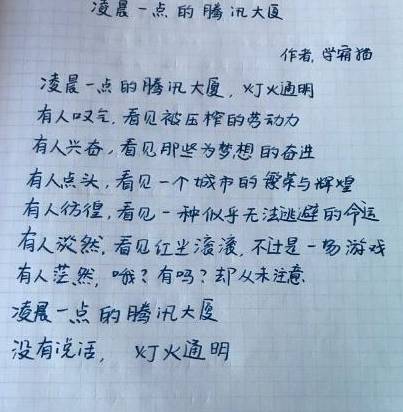 凌晨一点的腾讯大厦
作者，学霸猫
凌晨一点的腾讯大厦，灯火通明
有人叹气，看见被压榨的劳动力
有人兴奋，看见那些为梦想的奋进
有人点头，看见一个城市的繁荣与辉煌
有人彷徨，看见一种似乎无法逃避的命运
有人淡然，看见红尘滚滚，不过是一场游戏
有人茫然，哦？有吗？却从未注意
凌晨一点的腾讯大厦
没有说话，灯火通明